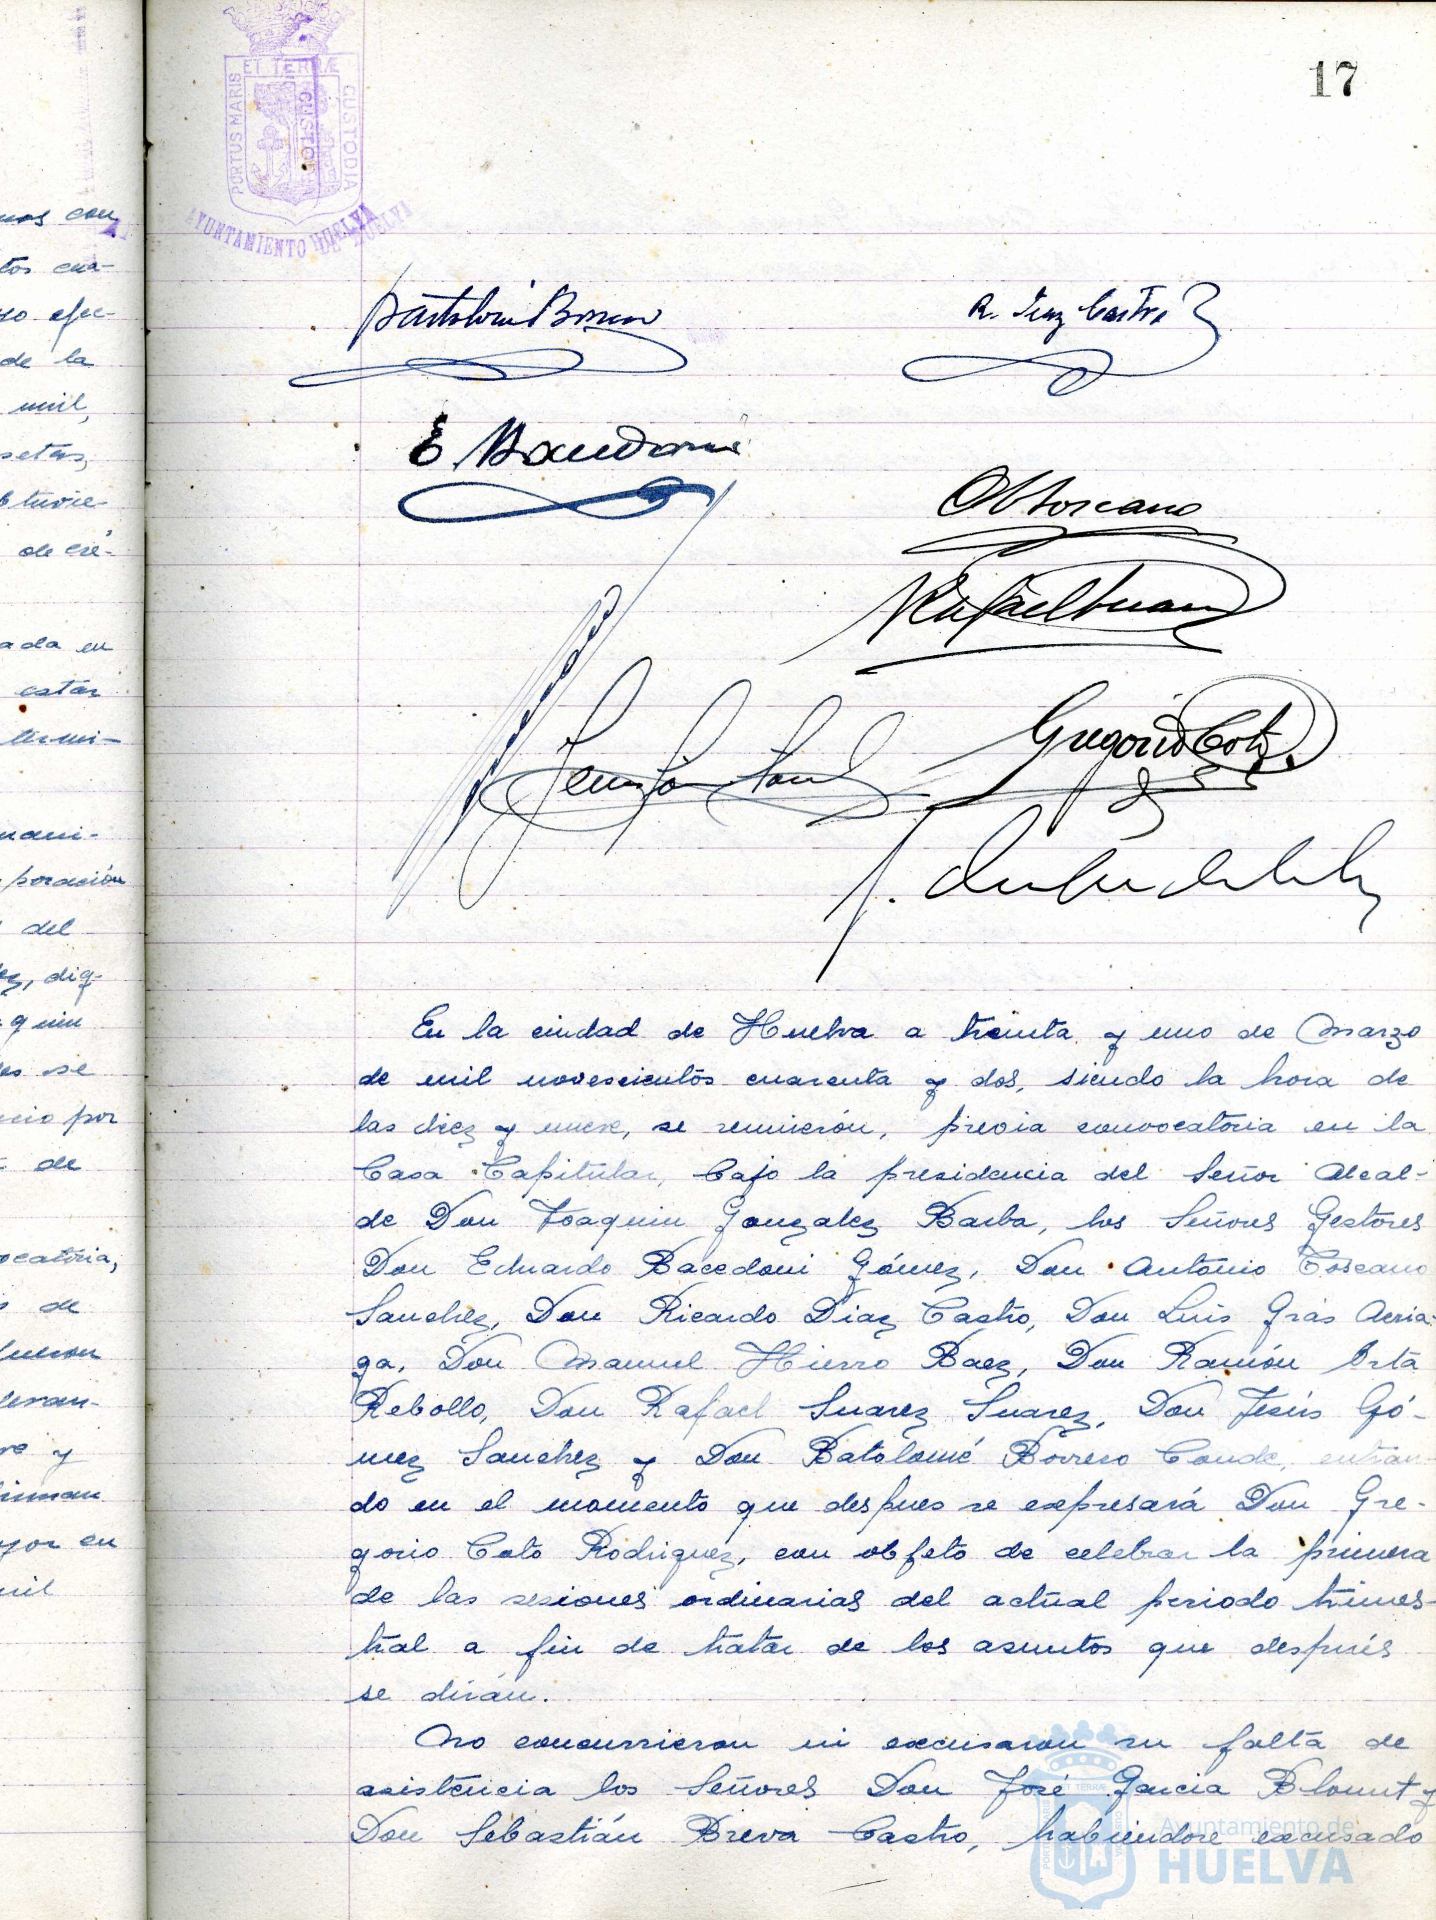 17
ET TERRÆ
PORTUS MARIS
CUSTODIA
AYUNTAMIENTO DE HUELVA
nos con
tos cua-
de la
mil,
setas,
de cré-
ada en
estar
termi-
poración
del
dig-
se
por
de
ocatoria,
de
y
firman
en
mil
R. Diaz Castro
E Bacedoni
A Toscano
Rafael Suarez
Gregorio Coto
En la ciudad de Huelva a treinta y uno de Marzo
de mil novescientos cuarenta y dos, siendo la hora de
las diez y nueve, se reunieron, previa convocatoria en la
Casa Capitular, bajo la presidencia del Señor Alcal-
de Don Joaquin Gonzalez Barba, los Señores Gestores
Don Eduardo Bacedoni Gómez, Don Antonio Toscano
Sanchez, Don Ricardo Diaz Castro, Don Luis Gras Arria-
ga, Don Manuel Hierro Baez, Don Ramón Orta
Rebollo, Don Rafael Suarez Suarez, Don Jesús Gó-
mez Sanchez y Don Batolomé Borrero Conde, entran-
do en el momento que despues se expresará Don Gre-
gorio Coto Rodriguez, con objeto de celebrar la primera
de las sesiones ordinarias del actual periodo trimes-
tral a fin de tratar de los asuntos que después
se dirán.
No concurrieron ni excusaron su falta de
asistencia los Señores Don José Garcia Blount y
Don Sebastián Breva Castro, habiendose excusado
Ayuntamiento de
HUELVA